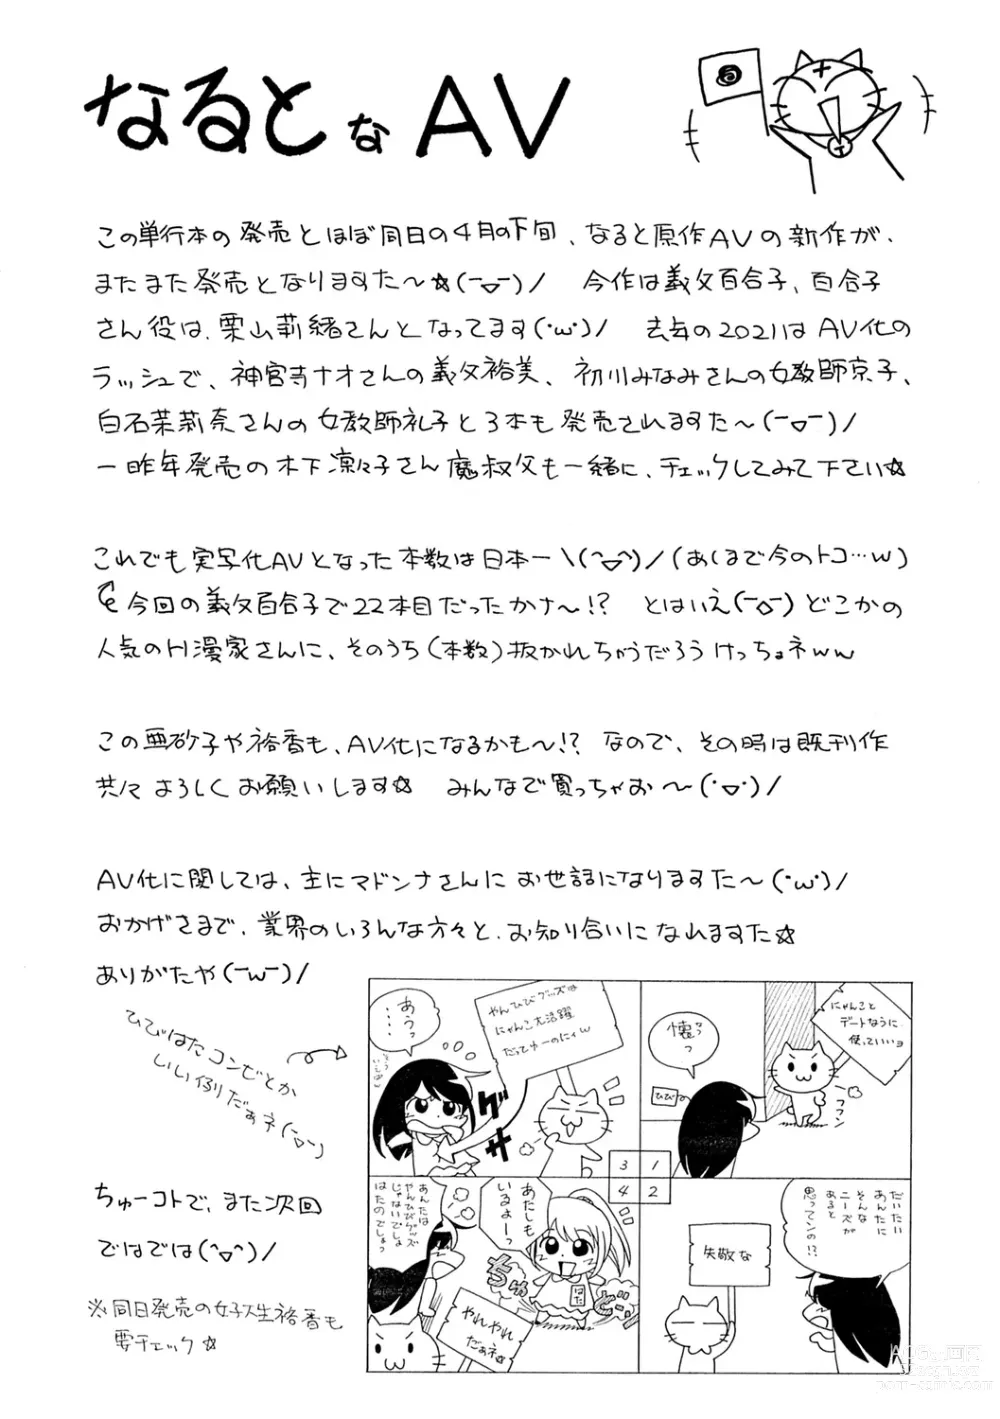 なるとなAV
この単行本の発売とほぼ同日の4月の下旬、なると原作AVの新作が、
またまた発売となりますた〜☆(￣▽￣)/ 今作は義父百合子、百合子
さん役は、栗山莉緒さんとなってます(・ω・)/ 去年の2021はAV化の
ラッシュで、神宮寺ナオさんの義父裕美、初川みなみさんの女教師京子、
白石茉莉奈さんの女教師礼子と3本も発売されますた〜(￣▽￣)/
一昨年発売の木下凛々子さん魔叔父も一緒に、チェックしてみて下さい☆
これでも実写化AVとなった本数は日本一\(^▽^)/(あくまで今のトコ…w)
今回の義父百合子で22本目だったかナ〜!? とはいえ(￣◇￣)どこかの
人気のH漫家さんに、そのうち(本数)抜かれちゃうだろうけっちょネww
この亜砂子や裕香も、AV化になるかも〜!? なので、その時は既刊作
共々よろしくお願いします☆ みんなで買っちゃお〜(・▽・)/
AV化に関しては、主にマドンナさんにお世話になりますた〜(・ω・)/
おかげさまで、業界のいろんな方々と、お知り合いになれますた☆
ありがたや(￣ω￣)/
ひびはたコンビとか
いい例りだぁネ(￣▽￣)
ちゅーコトで、また次回
ではでは(^▽^)/
※同日発売の女子大生裕香も
要チェック☆
にゃんこと
デートなうに
使っていいョ
懐っっ
ひび
フフン
だいたい
あんたに
そんな
ニーズが
あると
思ってンの!?
失敬な
やんひびグッズは
にゃんこ大活躍
だってゆーのにィw
あうっ
・・・・
グサ
あたしも
いるよーっ
あんたは
やんひびグッズ
じゃないでしょ
はたのでしょっ
はた
ちゅどーン
やれやれ
だぁネ☆
3 1
4 2